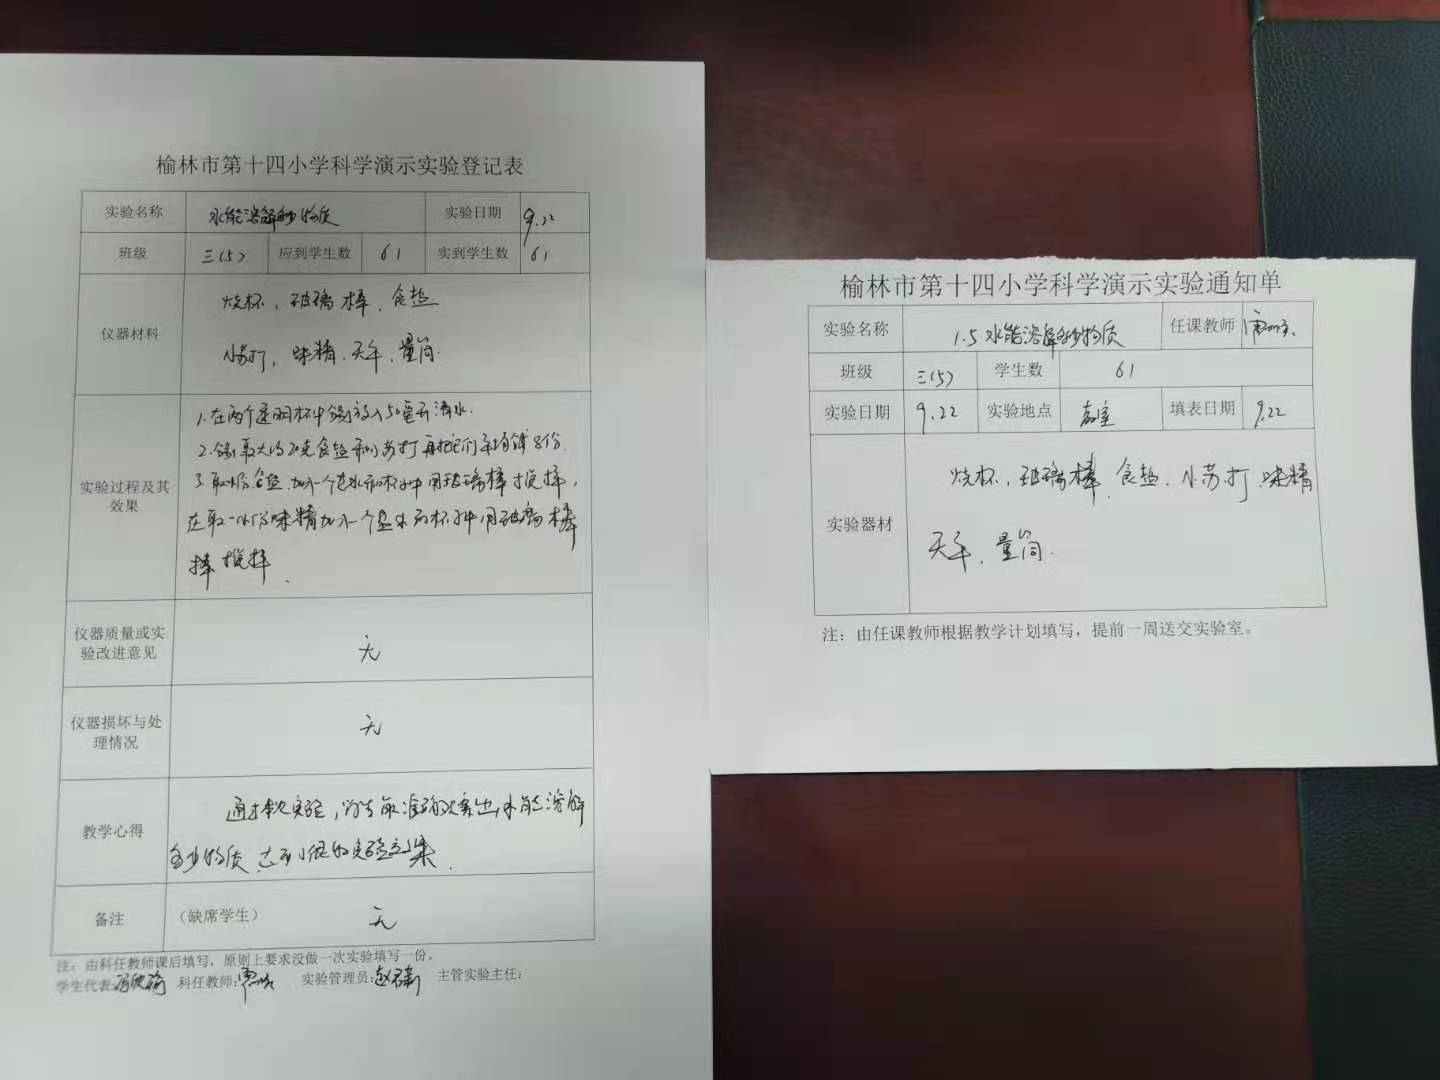 榆林市第十四小学科学演示实验登记表
实验名称 水能溶解多少物质 实验日期 9.22
班级 三(5) 应到学生数 61 实到学生数 61
仪器材料
烧杯，玻璃棒、食盐
小苏打，味精、天平、量筒.
实验过程及其
效果
1.在两个透明杯中分别放入50毫升清水.
2.分别取大约20克食盐和小苏打再把它们平均分成8份.
3.取一小份食盐加入一个装水的杯子中用玻璃棒搅拌，
在取一小份味精加入一个盛水的杯子中用玻璃棒
搅拌.
仪器质量或实
验改进意见
无
仪器损坏与处
理情况
无
教学心得
通过本次实验，学生能准确观察出水能溶解
多少物质 达到很好实验效果.
备注 （缺席学生） 无
注：由科任教师课后填写，原则上要求没做一次实验填写一份。
学生代表: 科任教师: 实验管理员: 主管实验主任:
榆林市第十四小学科学演示实验通知单
实验名称 1.5水能溶解多少物质 任课教师
班级 三(5) 学生数 61
实验日期 9.22 实验地点 教室 填表日期 9.22
实验器材
烧杯，玻璃棒、食盐、小苏打 味精
天平、量筒.
注：由任课教师根据教学计划填写，提前一周送交实验室。